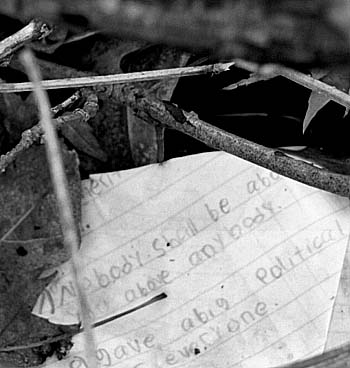 1) Nobody. Shall be abo
above anybody.
gave abig Political
everyone